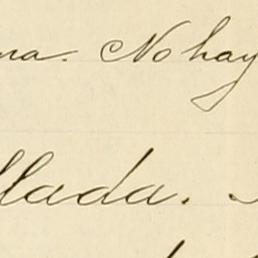 na. No hay
llada.